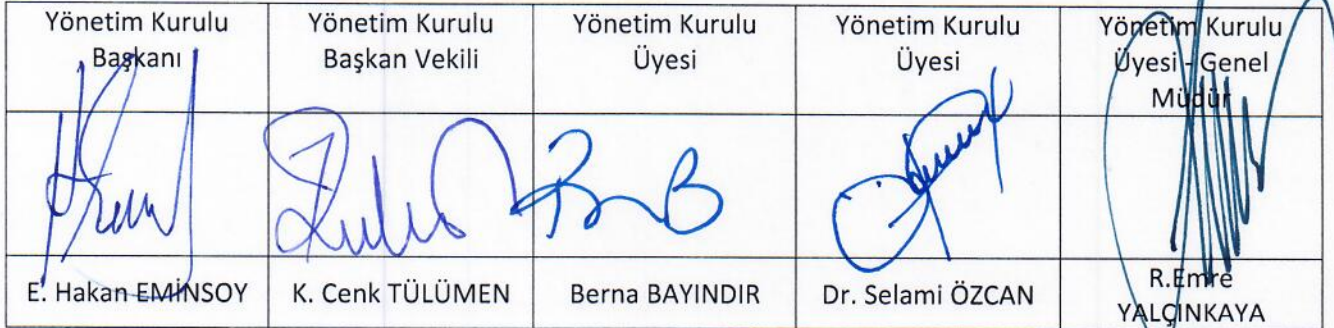 Yönetim Kurulu
Başkanı
Yönetim Kurulu
Başkan Vekili
Yönetim Kurulu
Üyesi
Yönetim Kurulu
Üyesi
Yönetim Kurulu
Üyesi - Genel
Müdür
E. Hakan EMİNSOY
K. Cenk TÜLÜMEN
Berna BAYINDIR
Dr. Selami ÖZCAN
R.Emre
YALÇINKAYA